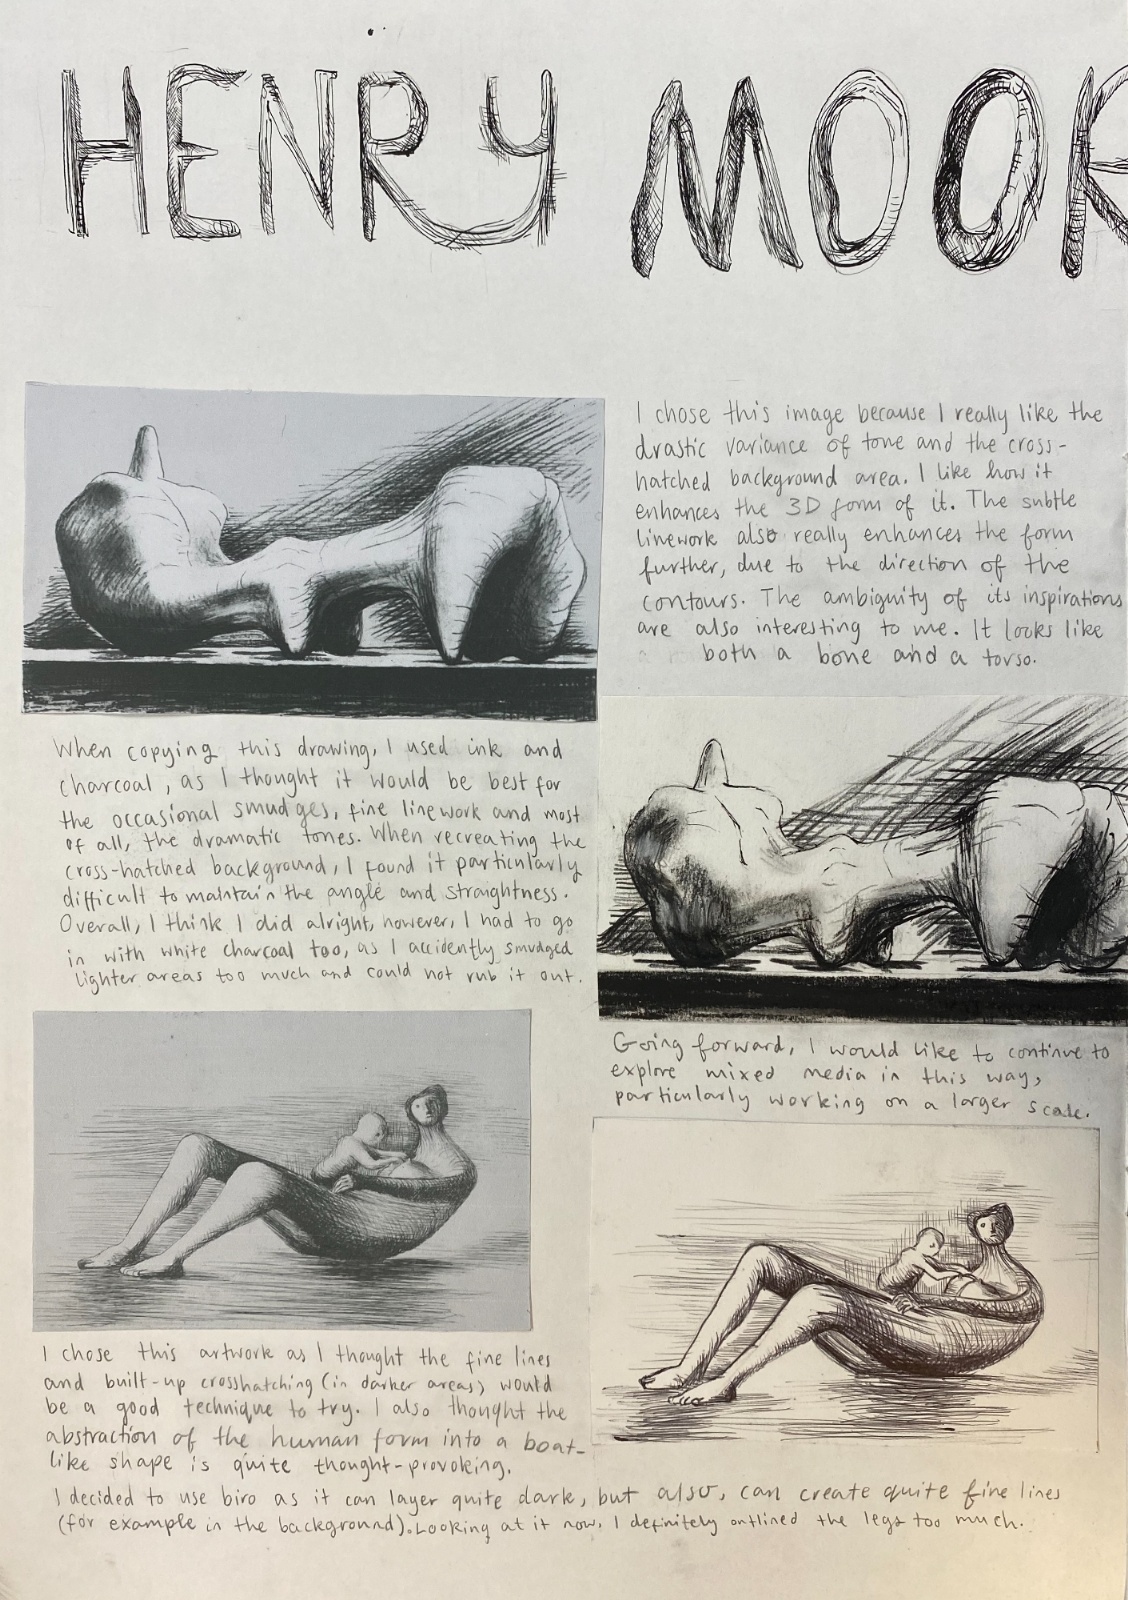 HENRY MOOR
I chose this image because I really like the
drastic variance of tone and the cross-
hatched background area. I like how it
enhances the 3D form of it. The subtle
linework also really enhances the form
further, due to the direction of the
contours. The ambiguity of its inspirations
are also interesting to me. It looks like
both a bone and a torso.
When copying this drawing, I used ink and
charcoal, as I thought it would be best for
the occasional smudges, fine linework and most
of all, the dramatic tones. When recreating the
cross-hatched background, I found it particularly
difficult to maintain the angle and straightness.
Overall, I think I did alright, however, I had to go
in with white charcoal too, as I accidently smudged
lighter areas too much and could not rub it out.
Going forward, I would like to continue to
explore mixed media in this way,
particularly working on a larger scale.
I chose this artwork as I thought the fine lines
and built-up crosshatching (in darker areas) would
be a good technique to try. I also thought the
abstraction of the human form into a boat-
like shape is quite thought-provoking.
I decided to use biro as it can layer quite dark, but also, can create quite fine lines
(for example in the background). Looking at it now, I definitely outlined the legs too much.